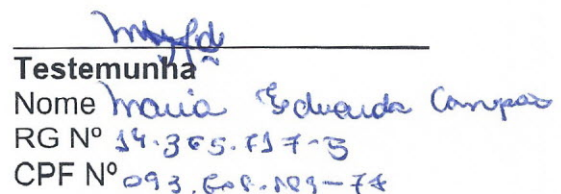 Testemunha
Nome Maria Eduarda Campão
RG Nº 14.365.717-3
CPF Nº 093.